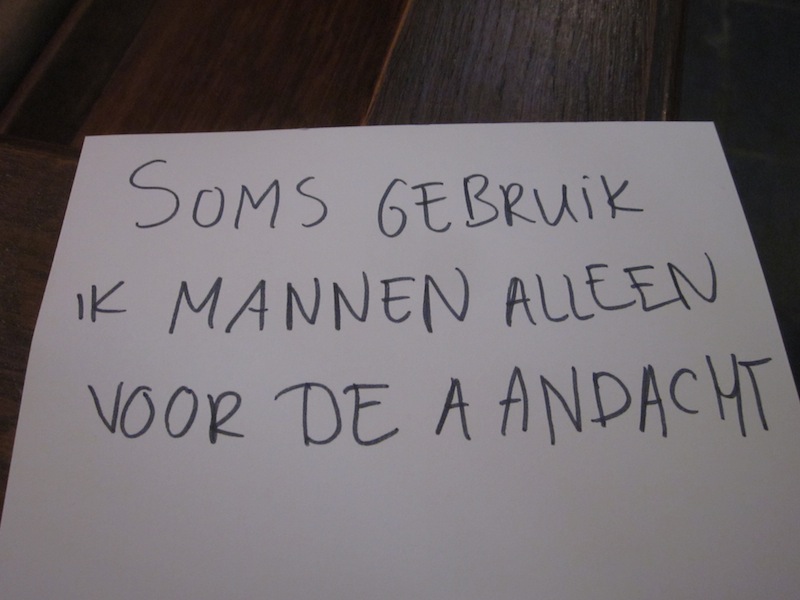 SOMS GEBRUiK
IK MANNEN ALLEEN
VOOR DE AANDACHT